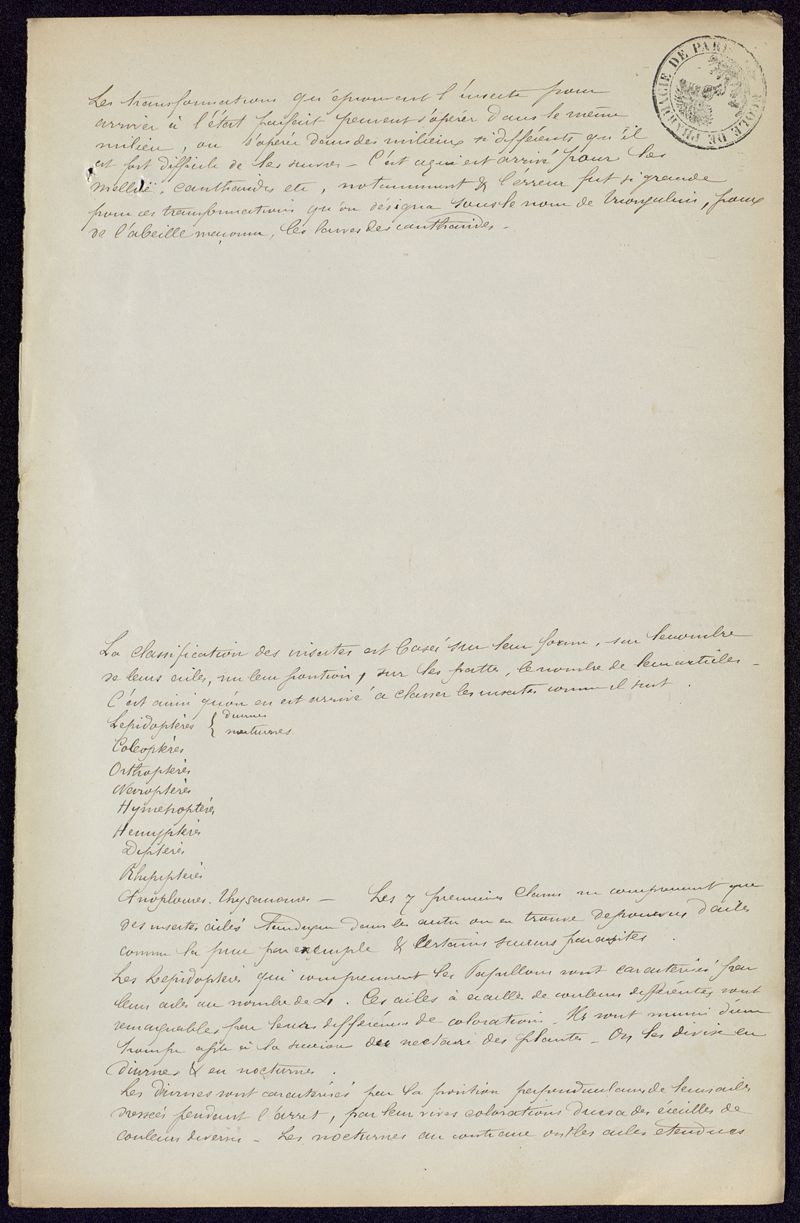 ECOLE DE PHARMACIE DE PARIS
Les transformations qu'éprouvent l'insecte pour
arriver à l'état parfait peuvent s'opérer dans le même
milieu, ou s'opérer dans des milieux si différents qu'il
est fort difficile de les suivre – C'est ce qui est arrivé pour les
Melloë, cantharides etc, notamment & l'erreur fut si grande
pour ces transformations qu'on désigna sous le nom de triongulins, poux
de l'abeille maçonne, les larves des cantharides –
La classification des insectes est basés sur leur forme, sur le nombre
de leurs ailes, sur leur position, sur les pattes, le nombre de leurs articles –
C'est ainsi qu'on en est arrivé à classer les insectes comme il suit.
Lepidoptères { diurnes
nocturnes
Coleoptères
Orthoptères
Nevroptères
Hymenoptères
Hemyptères
Diptères
Rhipiptères
Anoploures. Thysanoures – Les 7 premières classes ne comprennent que
des insectes ailés tandis que dans les autres on en trouve dépourvus d'ailes
comme la puce par exemple & certains suceurs parasites.
Les Lepidoptères qui comprennent les Papillons sont caracterisés par
leurs ailes au nombre de 4. Ces ailes à écailles de couleurs différentes sont
remarquables par leurs différences de colorations. Ils sont muni d'une
trompe apte à la succion des nectaire des plantes – On les divise en
diurnes & en nocturnes.
Les Diurnes sont caractérisés par la position perpendiculaire de leurs ailes
dressées pendant l'arret, par leur vives colorations dues a des écailles de
couleurs diverses – Les nocturnes au contraire ont les ailes etendues